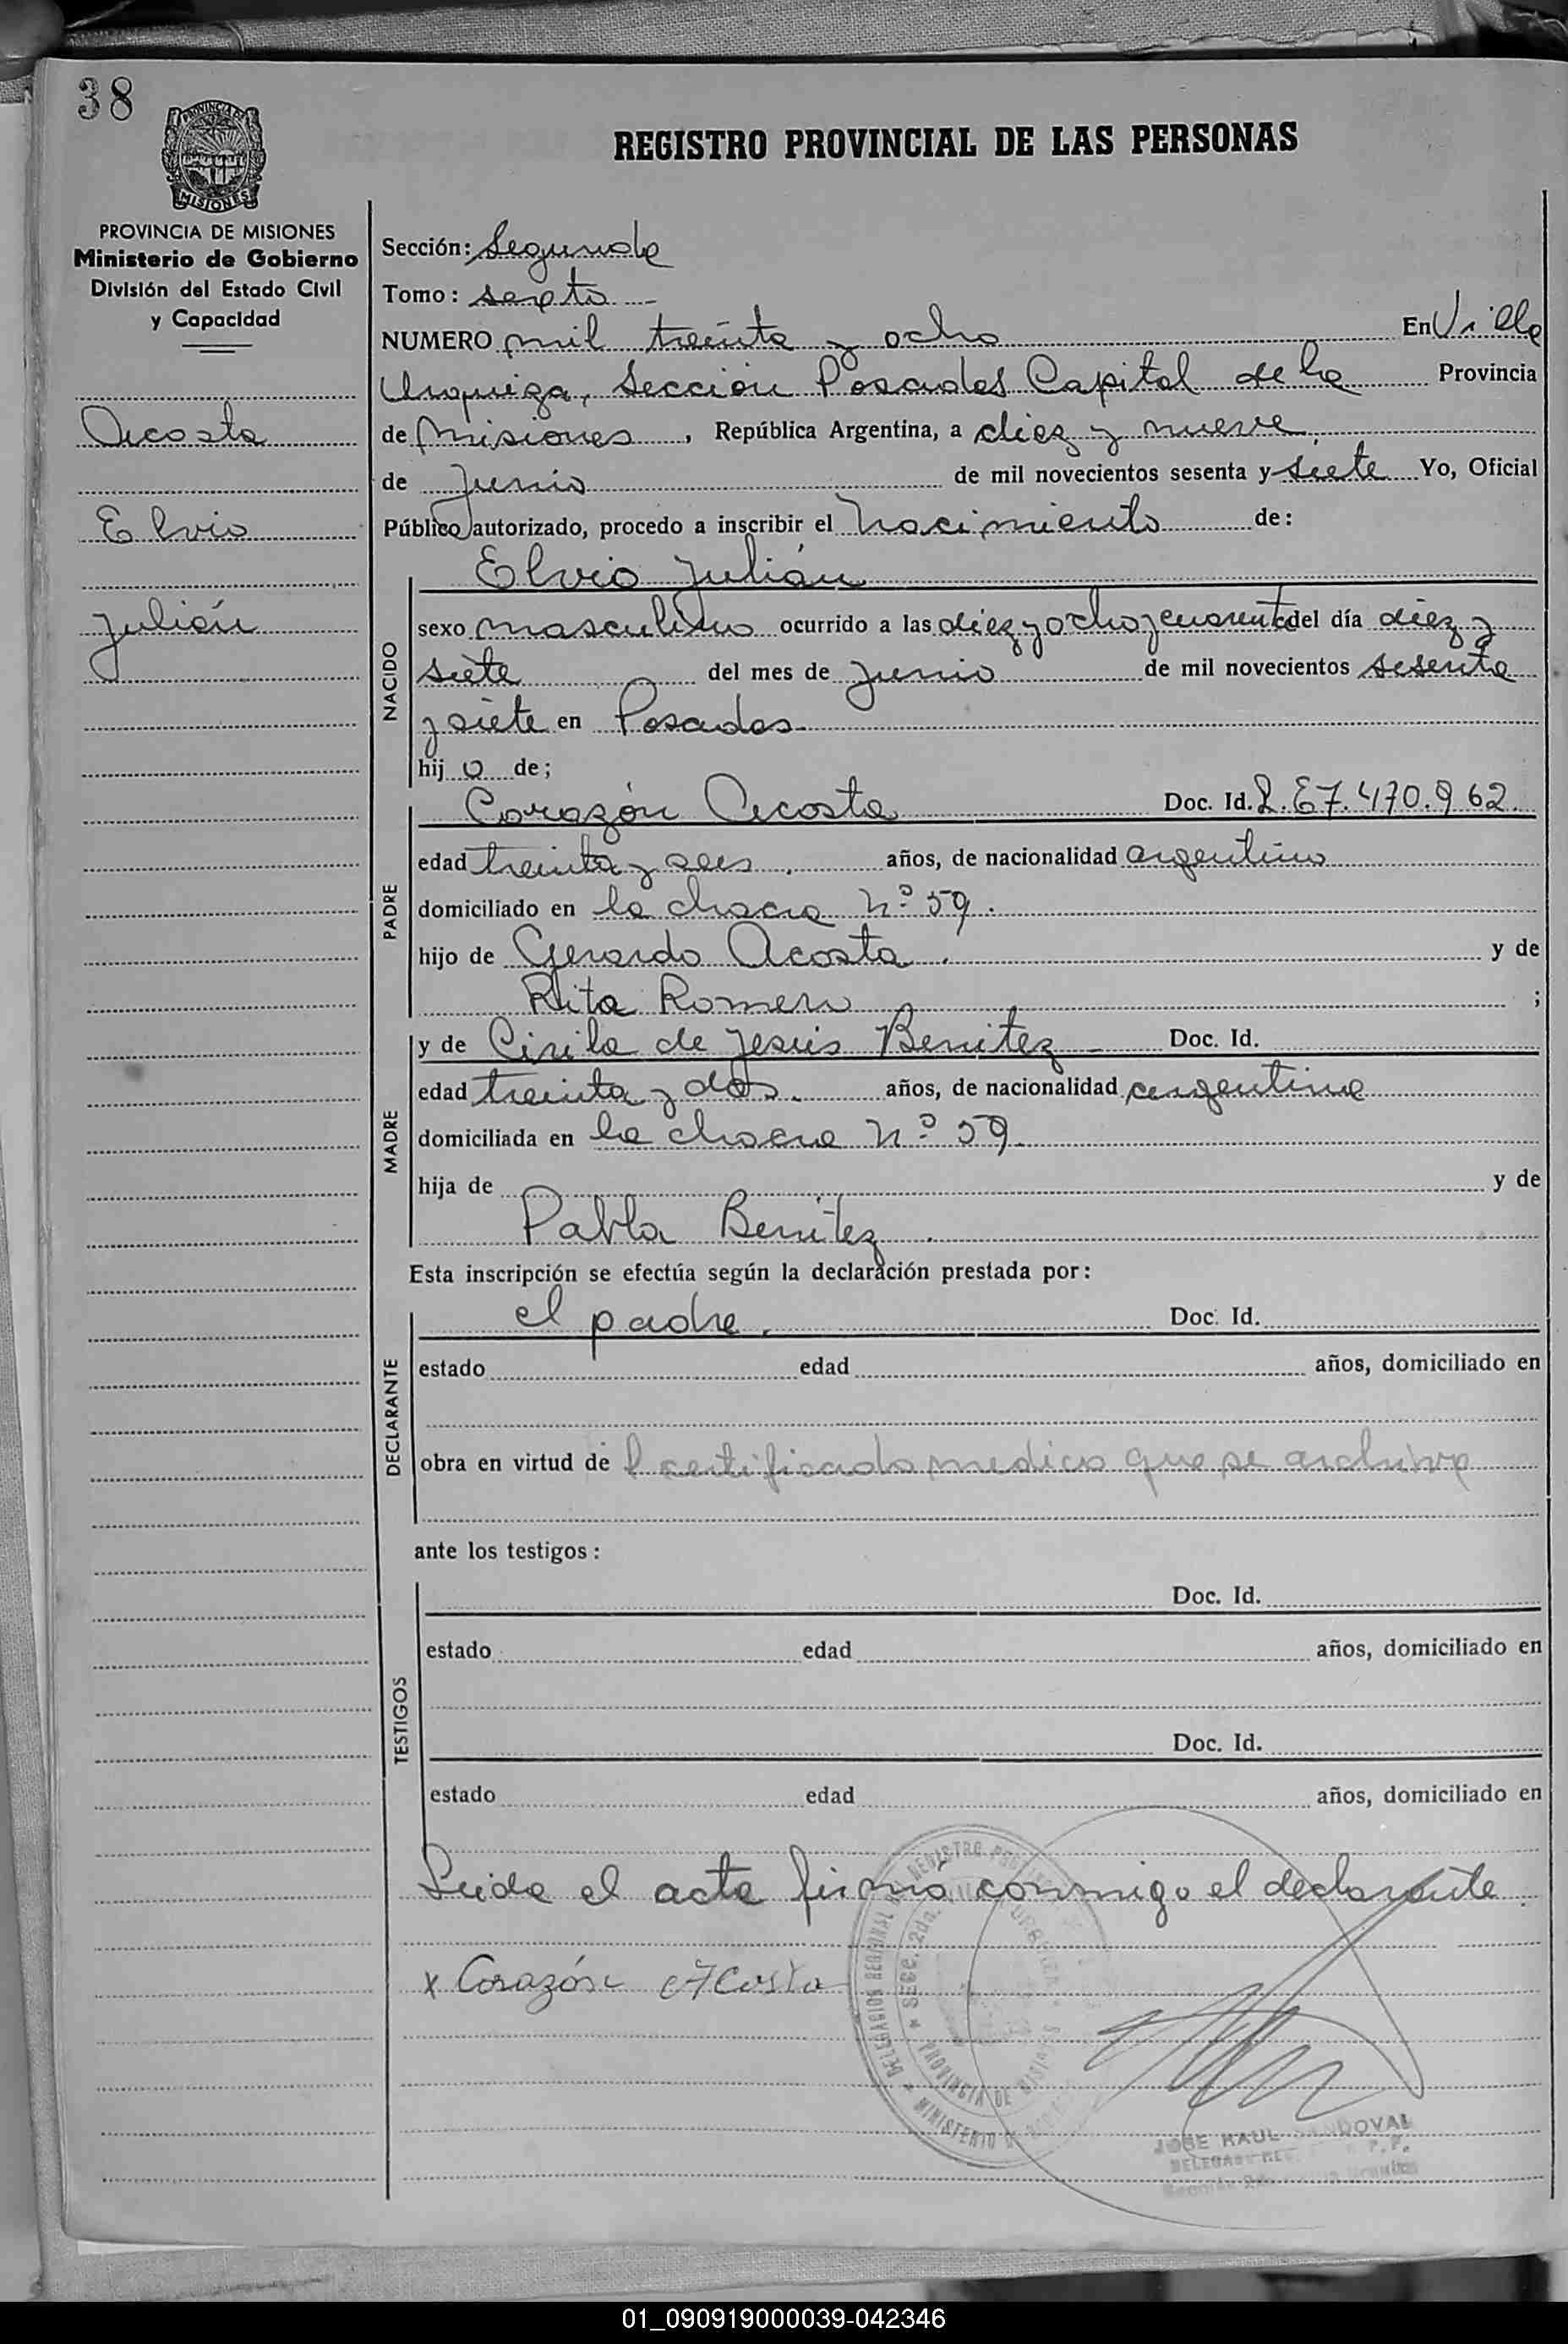 38
PROVINCIA DE
MISIONES
REGISTRO PROVINCIAL DE LAS PERSONAS
PROVINCIA DE MISIONES
Ministerio de Gobierno
División del Estado Civil
y Capacidad
Acosta
Elvio
Julián
Sección: Segunda
Tomo: sexto
NUMERO mil treinta y ocho En Villa
Urquiza, Sección Posadas Capital de la Provincia
de Misiones, República Argentina, a diez y nueve
de Junio de mil novecientos sesenta y siete Yo, Oficial
Público autorizado, procedo a inscribir el nacimiento de:
NACIDO
Elvio Julián
sexo masculino ocurrido a las diez y ocho y cuarenta del día diez y
siete del mes de Junio de mil novecientos sesenta
y siete en Posadas
hijo de;
PADRE
Corazón Acosta Doc. Id. L.E 7.470.962.
edad treinta y seis. años, de nacionalidad argentino
domiciliado en la chacra Nº 59.
hijo de Gerardo Acosta. y de
Rita Romero ;
MADRE
y de Cirila de Jesús Benitez Doc. Id.
edad treinta y dos. años, de nacionalidad argentina
domiciliada en la chacra Nº 59.
hija de y de
Pabla Benitez.
Esta inscripción se efectúa según la declaración prestada por:
DECLARANTE
el padre. Doc. Id.
estado edad años, domiciliado en
obra en virtud de l certificado medico que se archiva
ante los testigos:
TESTIGOS
Doc. Id.
estado edad años, domiciliado en
Doc. Id.
estado edad años, domiciliado en
Leida el acta firmó conmigo el declarante.
x Corazón Acosta
DELEGACION REGIONAL REGISTRO
SECC. 2da. URQUIZA
PROVINCIA DE MISIONES
MINISTERIO DE
JOSE RAUL SANDOVAL
DELEGADO
01_090919000039-042346